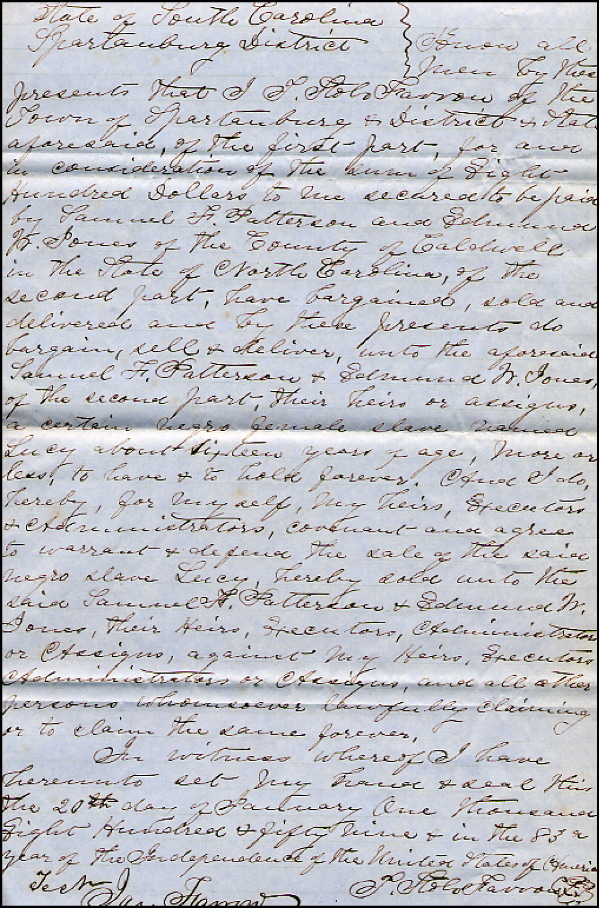 State of South Carolina
Spartanburg District
Know all
Men by these
presents that I T. Stobo Farrow of the
Town of Spartanburg & District & State
aforesaid, of the first part, for and
in consideration of the sum of Eight
Hundred Dollars to me secured to be paid
by Samuel F. Patterson and Edmund
W. Jones of the County of Caldwell
in the State of North Carolina, of the
second part, have bargained, sold and
delivered and by these presents do
bargain, sell & deliver, unto the aforesaid
Samuel F. Patterson & Edmund W. Jones,
of the second part, their heirs or assigns,
a certain negro female slave named
Lucy about sixteen years of age, more or
less, to have & to hold forever. And I do,
hereby, for my self, my heirs, Executors
& Administrators, covenant and agree
to warrant & defend the sale of the said
negro slave Lucy, hereby sold unto the
said Samuel F. Patterson & Edmund W.
Jones, their Heirs, Executors, Administrators
or Assigns, against my Heirs, Executors
Administrators or Assigns, and all other
persons whomsoever lawfully claiming
or to claim the same forever.
In witness whereof I have
hereunto set my hand & seal this
the 20th day of January One thousand
Eight Hundred & fifty nine & in the 83d
year of the Independence of the United States of America
Test
Jas. Farrow
T. Stobo Farrow